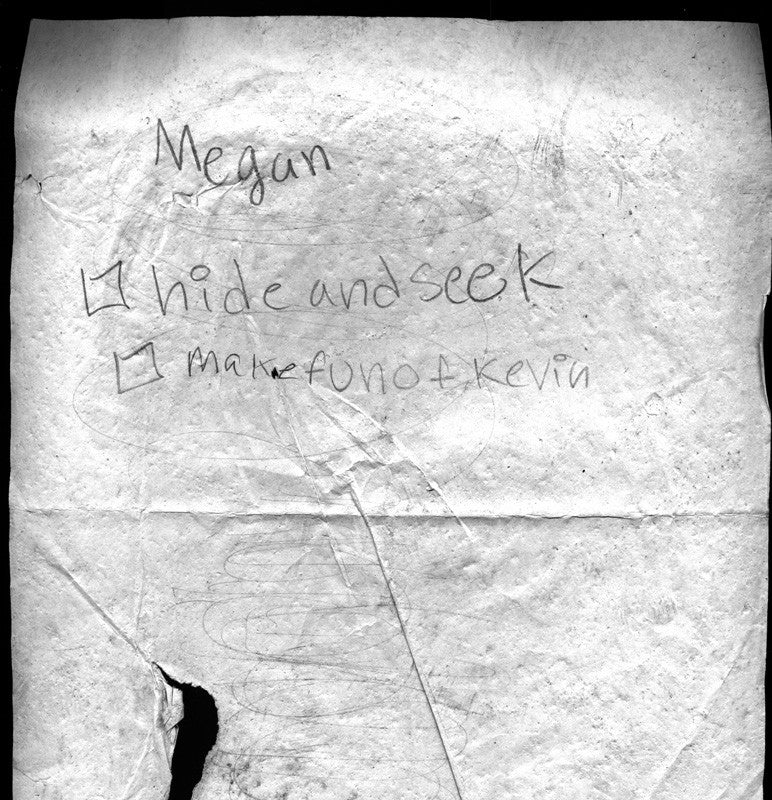 Megan
hide and seek
make fun of Kevin